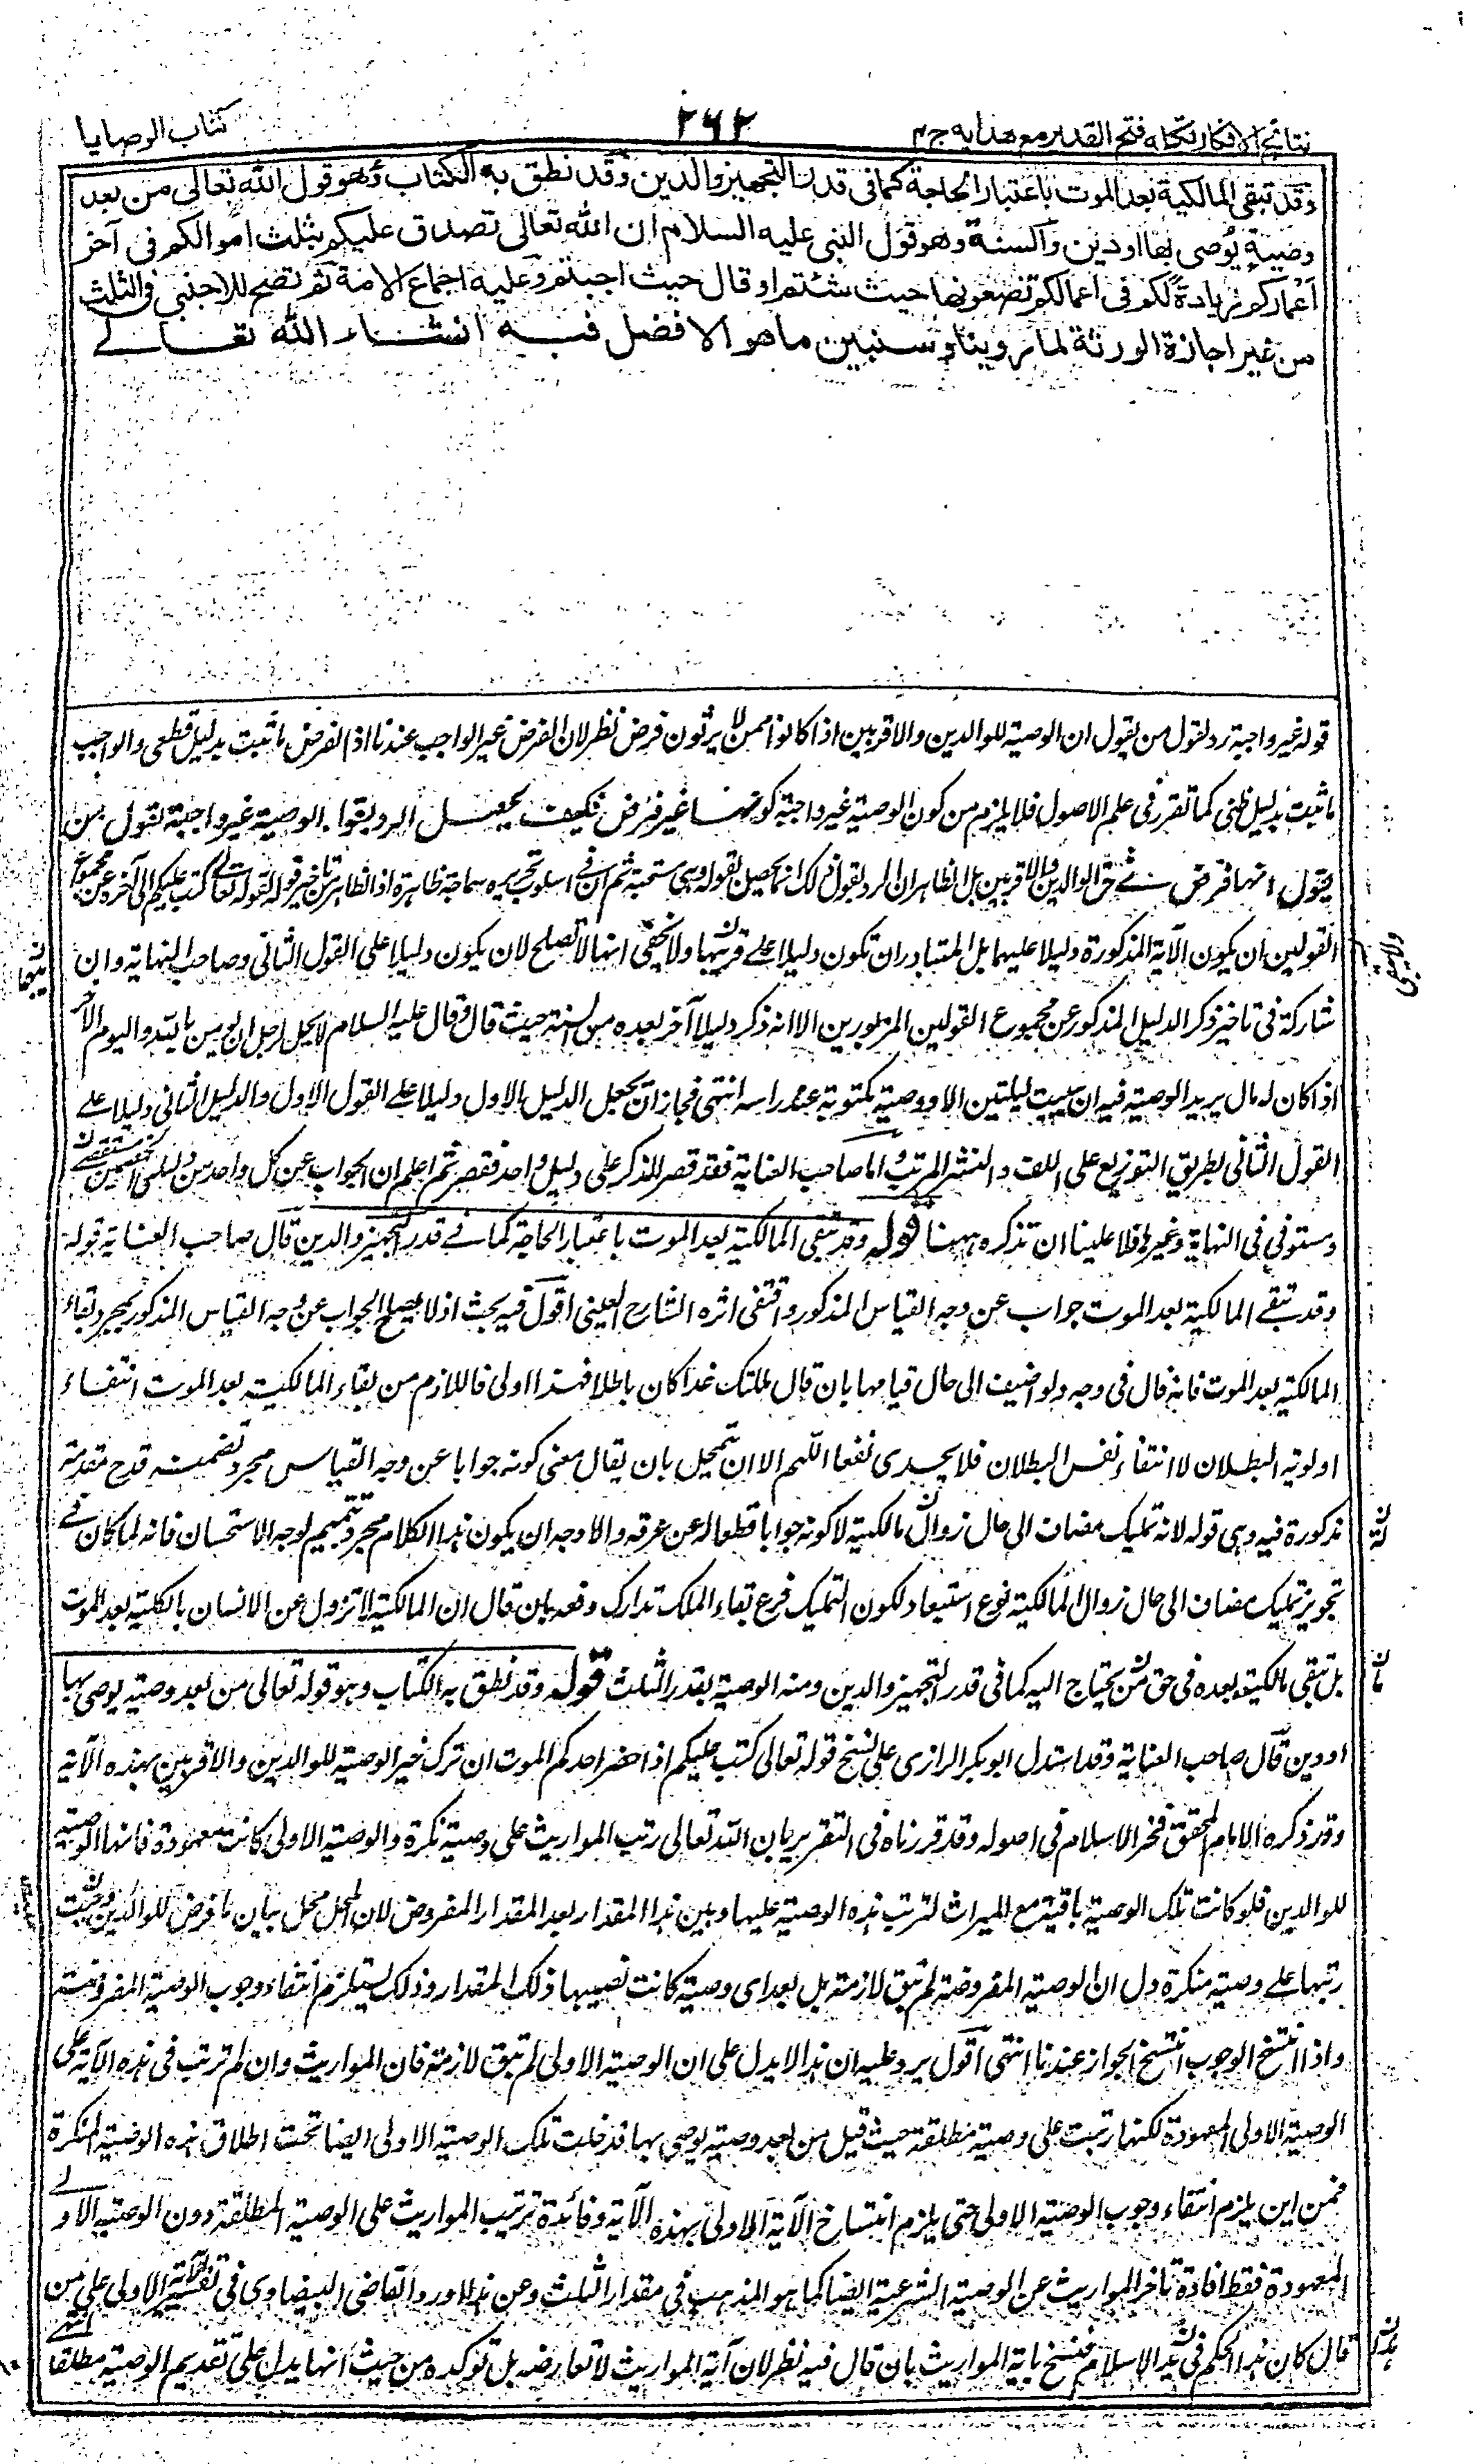 نتائج الافكار تكمله فتح القدير مع هدايه ج ۴
۲۶۲
كتاب الوصايا
وقد تبقى المالكية بعد الموت باعتبار الحاجة كما فى قدر التجهيز والدين وقد نطق به الكتاب وهو قول الله تعالى من بعد
وصية يُوصى بها اودين والسنة وهو قول النبى عليه السلام ان الله تعالى تصدق عليكم بثلث اموالكم فى آخر
اعماركم زيادة لكم فى اعمالكم تضعونها حيث شئتم او قال حيث احببتم وعليه اجماع الامة ثم تصح للاجنبى فى الثلث
من غير اجازة الورثة لما روينا وسنبين ما هو الافضل فيه انشاء الله تعالے
قوله غير واجبة رد لقول من يقول ان الوصية للوالدين والاقربين اذا كانوا ممن لا يرثون فرض نظر لان الفرض غير الواجب عندنا اذ الفرض ما ثبت بدليل قطعى والواجب
ما ثبت بدليل ظنى كما تقرر فى علم الاصول فلا يلزم من كون الوصية غير واجبة كونها غير فرض فكيف يحصل الرد بقوله الوصية غير واجبة لقول من
يقول انها فرض فے حق الوالدين والاقربين بل الظاهر ان الرد لقول ذلك انما يحصل بقوله وهى مستحبة ثم ان فے اسلوب تحريره سماجة ظاهرة اذ الظاهر من تاخير قوله لقوله تعالے كتب عليكم الى آخره عن مجموع
القولين ان يكون الآية المذكورة دليلا عليهما بل المتبادر ان تكون دليلا علے قربتها ولا يخفى انها لا تصلح لان يكون دليلا على القول الثانى وصاحب النهاية وان
شاركه فى تاخير ذكر الدليل المذكور عن مجموع القولين المزبورين الا انه ذكر دليلا آخر بعده من السنة حيث قال وقال عليه السلام لا يحل لرجل يؤمن بالله واليوم الآخر
اذا كان له مال يريد الوصية فيه ان يبيت ليلتين الا ووصيته مكتوبة عند راسه انتهى فجاز ان يجعل الدليل الاول دليلا علے القول الاول والدليل الثانى دليلا علے
القول الثانى بطريق التوزيع على اللف والنشر المرتب واما صاحب العناية فقد قصر الذكر على دليل واحد فقصر ثم اعلم ان الجواب عن كل واحد من دليلى الخصمين مستقصے
ومستوفى فى النهاية وغيرها فلا علينا ان نذكره ههنا قوله وقد تبقى المالكية بعد الموت باعتبار الحاجة كما فے قدر التجهيز والدين قال صاحب العناية قوله
وقد تبقے المالكية بعد الموت جواب عن وجه القياس المذكور واقتفى اثره الشارح العينى اقول فيه بحث اذ لا يصلح الجواب عن وجه القياس المذكور بمجرد بقاء
المالكية بعد الموت فانه قال فى وجه ولو اضيف الى حال قيامها بان قال ملكتك غدا كان باطلا فهذا اولى فاللازم من بقاء المالكية بعد الموت انتفاء
اولوية البطلان لا انتفاء نفس البطلان فلا يجدى نفعا اللهم الا ان يتمحل بان يقال معنى كونه جوابا عن وجه القياس مجرد تضمنه قدح مقدمة
مذكورة فيه وهى قوله لانه تمليك مضاف الى حال زوال مالكيته لا كونه جوابا قطعا له عن عرقه والاوجه ان يكون هذا الكلام مجرد تتميم لوجه الاستحسان فانه لما كان فے
تجويز تمليك مضاف الى حال زوال المالكية نوع استبعاد لكون التمليك فرع بقاء الملك تدارك دفعه بان قال ان المالكية لا تزول عن الانسان بالكلية بعد الموت
بل تبقى مالكيته بعده فى حق من يحتاج اليه كما فى قدر التجهيز والدين ومنه الوصية بقدر الثلث قوله وقد نطق به الكتاب وهو قوله تعالى من بعد وصية يوصى بها
اودين قال صاحب العناية وقد استدل ابو بكر الرازى على نسخ قوله تعالى كتب عليكم اذا حضر احدكم الموت ان ترك خير الوصية للوالدين والاقربين بهذه الآية
وقد ذكره الامام المحقق فخر الاسلام فى اصوله وقد قررناه فى التقرير بان الله تعالى رتب المواريث على وصية نكرة والوصية الاولى كانت معهودة فانها الوصية
للوالدين فلو كانت تلك الوصية باقية مع الميراث لترتب هذه الوصية عليها وبين هذا المقدار بعد المقدار المفروض لان المحل محل بيان ما فرض للوالدين وحيث
رتبها علے وصية منكرة دل ان الوصية المفروضة لم تبق لازمة بل بعد اى وصية كانت نصيبها ذلك المقدار وذلك يستلزم انتفاء وجوب الوصية المفروضة
واذا انتسخ الوجوب انتسخ الجواز عندنا انتهى اقول يرد عليه ان هذا لا يدل على ان الوصية الاولى لم تبق لازمة فان المواريث وان لم ترتب فى هذه الآية على
الوصية الاولى المعهودة لكنها رتبت على وصية مطلقة حيث قيل من بعد وصية يوصى بها فدخلت تلك الوصية الاولى ايضا تحت اطلاق هذه الوصية المنكرة
فمن اين يلزم انتفاء وجوب الوصية الاولى حتى يلزم انتساخ الآية الاولى بهذه الآية وفائدة ترتيب المواريث على الوصية المطلقة دون الوصية الاولے
المعهودة فقط افادة تاخر المواريث عن الوصية الشرعية ايضا كما هو المذهب فى مقدار الثلث وعن هذا اورد القاضى البيضاوى فى تفسير الآية الاولى على من
قال كان هذا الحكم فى بدء الاسلام فنسخ بآية المواريث بان قال فيه نظر لان آية المواريث لا تعارضه بل تؤكده من حيث انها يدل على تقديم الوصية مطلقا انتهے